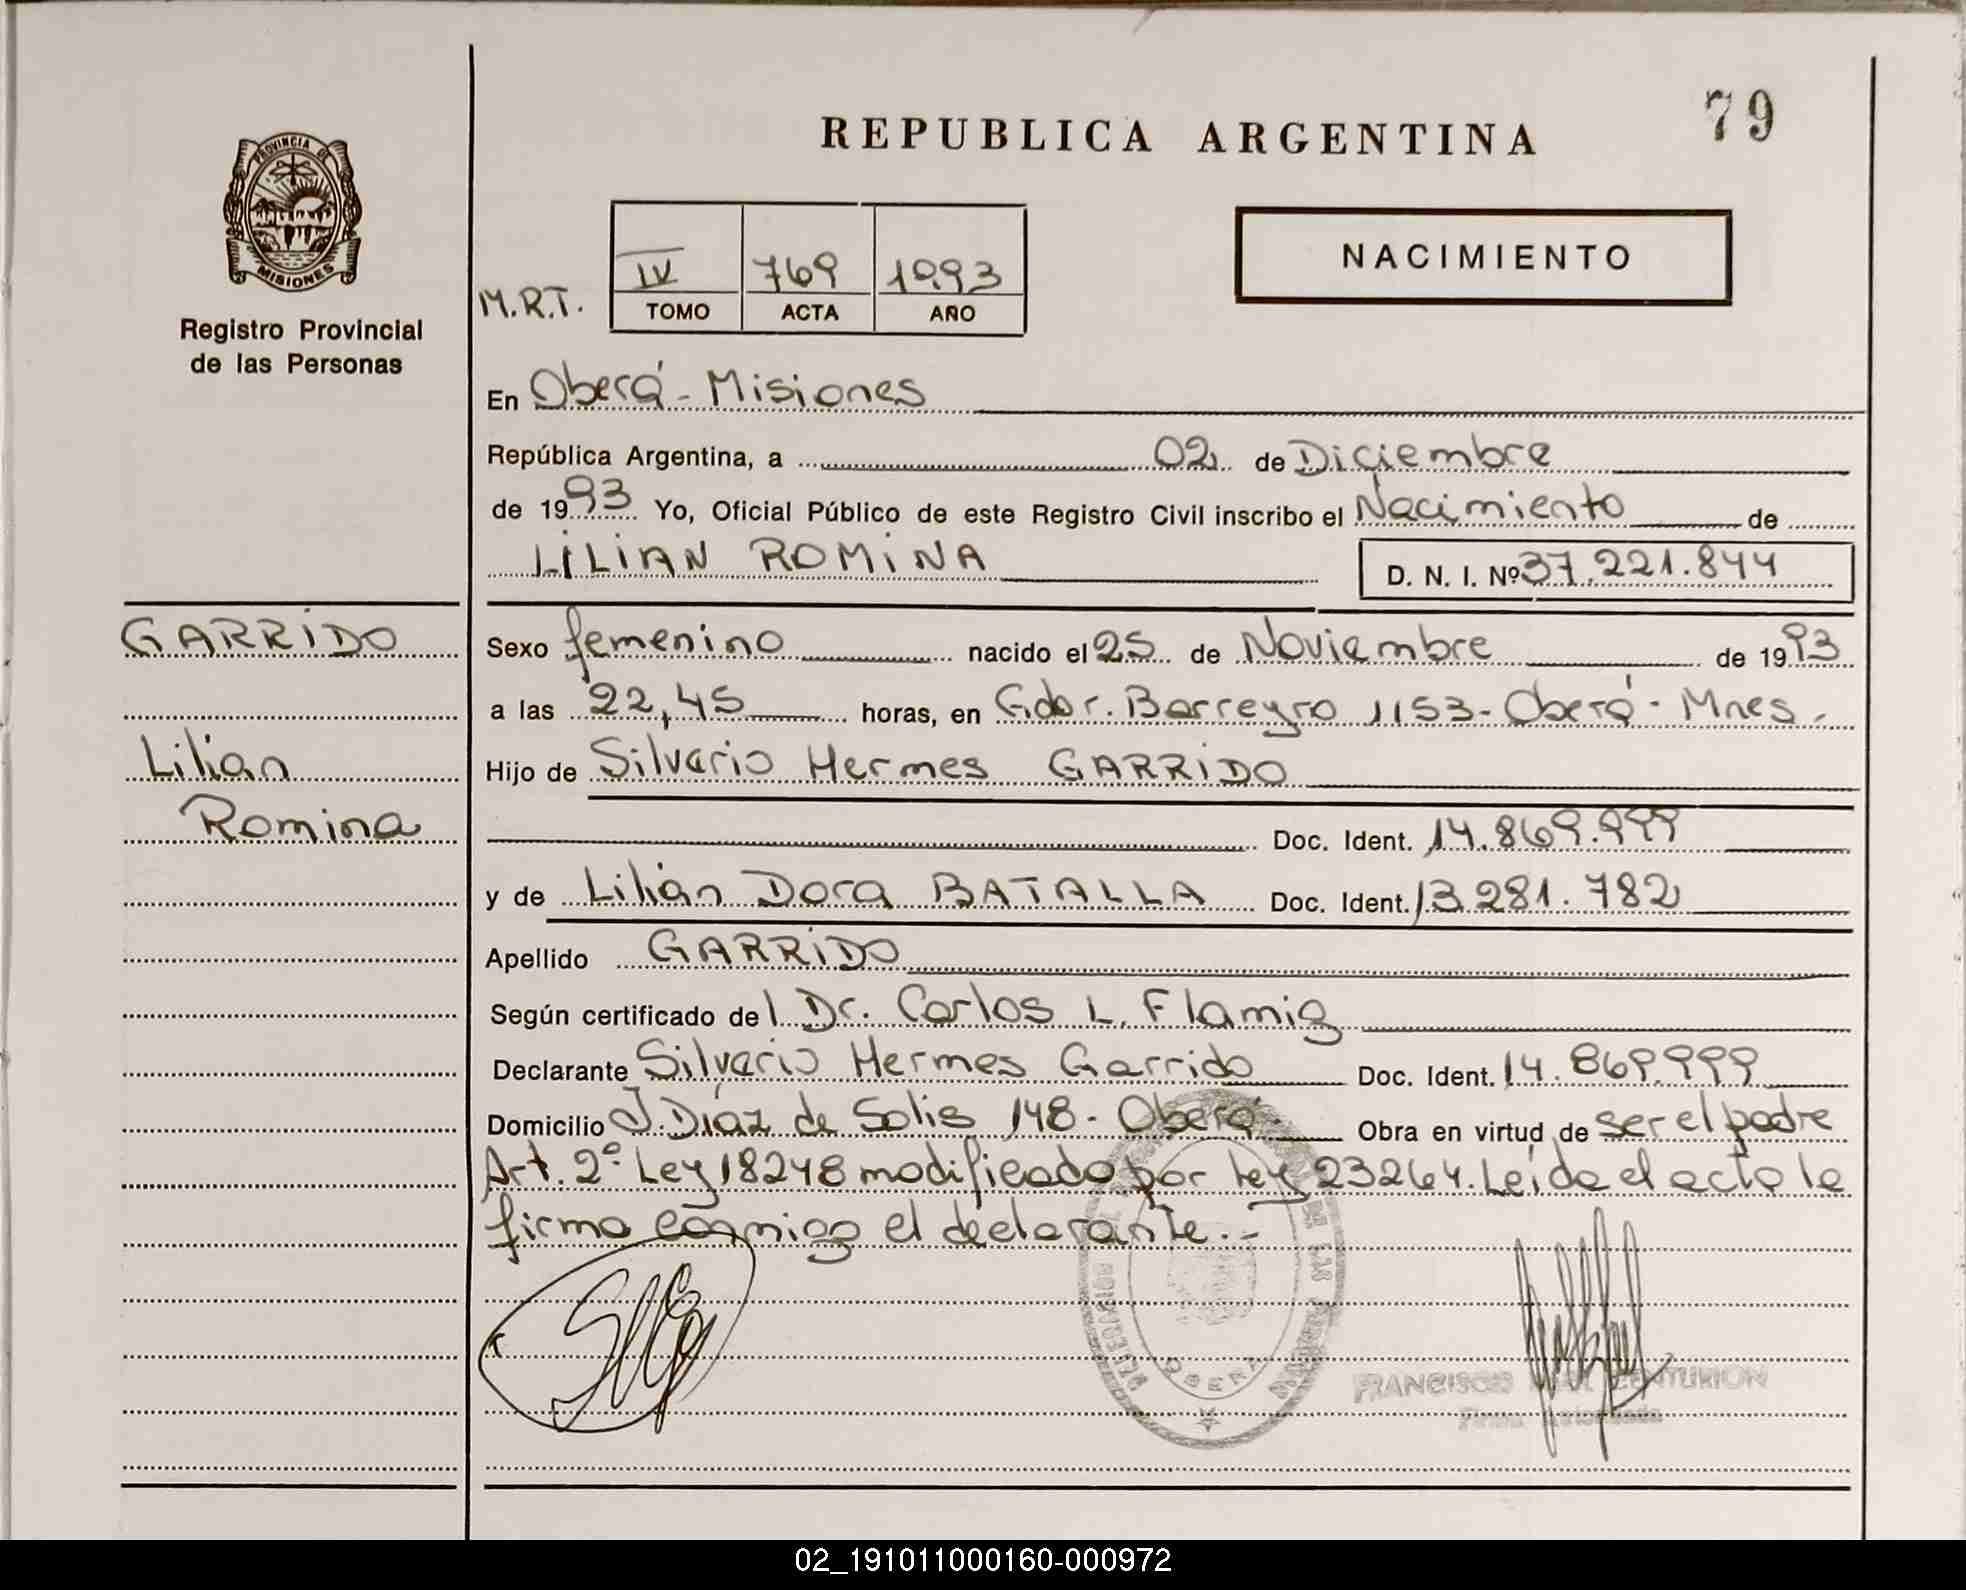 79
REPUBLICA ARGENTINA
PROVINCIA DE
MISIONES
Registro Provincial
de las Personas
NACIMIENTO
M.R.T.
IV 769 1993
TOMO ACTA AÑO
En Oberá - Misiones
República Argentina, a 02 de Diciembre
de 1993 Yo, Oficial Público de este Registro Civil inscribo el Nacimiento de
LILIAN ROMINA D. N. I. Nº 37.221.844
GARRIDO
Lilian
Romina
Sexo femenino nacido el 25 de Noviembre de 1993
a las 22,45 horas, en Gdor. Barreyro 1153 - Oberá - Mnes.
Hijo de Silverio Hermes GARRIDO
Doc. Ident. 14.869.999
y de Lilian Dora BATALLA Doc. Ident. 13.281.782
Apellido GARRIDO
Según certificado del Dr. Carlos L. Flamig
Declarante Silverio Hermes Garrido Doc. Ident. 14.869.999
Domicilio J. Díaz de Solis 148 - Oberá - Obra en virtud de ser el padre
Art. 2º Ley 18248 modificado por Ley 23264. Leída el acta la
firma conmigo el declarante. -
OBERA
FRANCISCO CENTURION
02_191011000160-000972